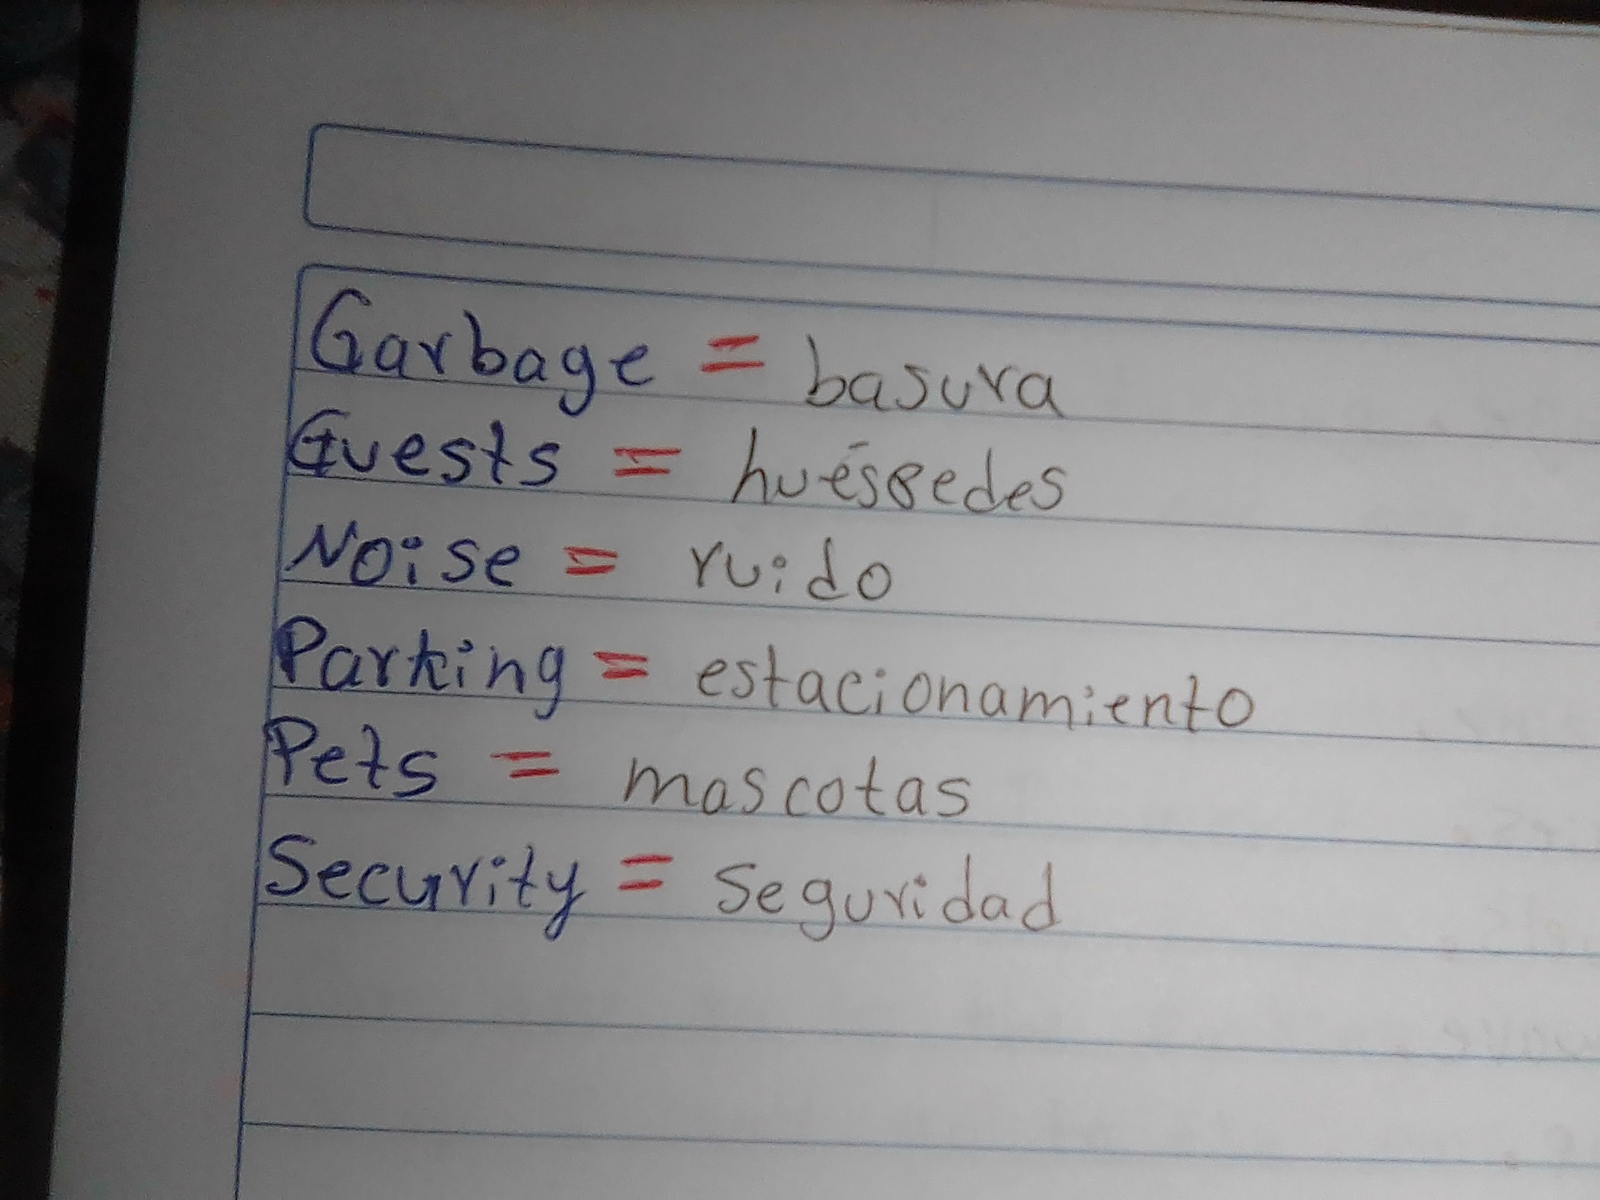 Garbage = basura
Guests = huéspedes
Noise = ruido
Parking = estacionamiento
Pets = mascotas
Security = seguridad